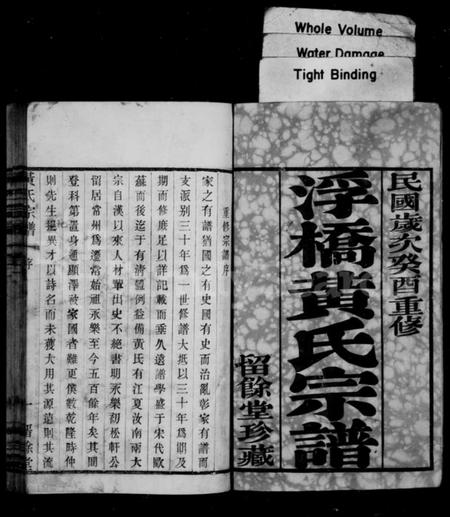 Whole Volume
Water Damage
Tight Binding
民國歲次癸酉重修
浮橋黃氏宗譜
留餘堂珍藏
重修宗譜序
家之有譜猶國之有史國有史而治亂彰家有譜而
支派別三十年爲一世修譜大抵以三十年爲鼎及
期而修庶足以詳記載而垂久遠譜學盛于宋代歐
蘇而後迄于有清體例益備黃氏有江夏汝南兩大
宗自漢以來人材輩出史不絕書明永樂初松軒公
留居常州爲遷常始祖永樂至今五百餘年矣其間
登科第置身通顯澤被家國者難更僕數乾隆時仲
則先生挺異才以詩名而未獲大用其源遠則其流
黃氏宗譜
序
一
留餘堂